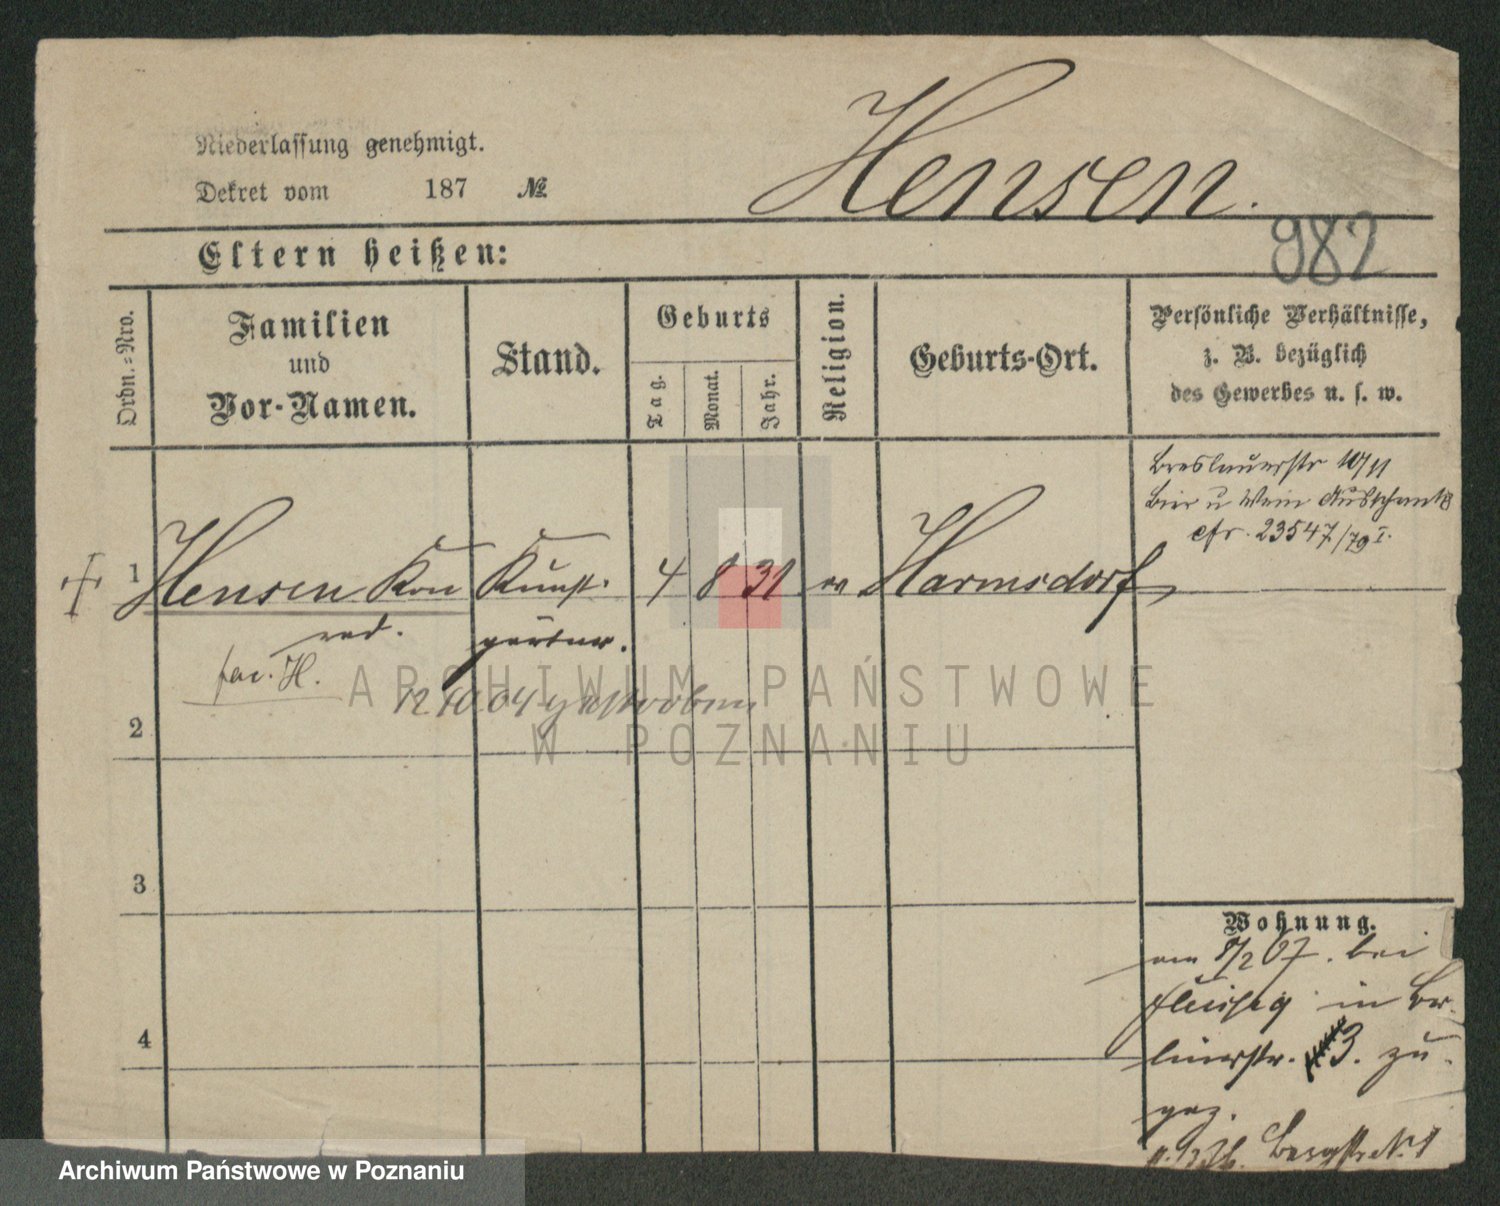 Niederlassung genehmigt.
Dekret vom 187 №
Hensen.
982
Eltern heißen:
Ordn.-Nro.
Familien
und
Vor-Namen.
Stand.
Geburts
Tag.
Monat.
Jahr.
Religion.
Geburts-Ort.
Persönliche Verhältnisse,
z. B. bezüglich
des Gewerbes u. s. w.
Breslauerstr 10/11
Bier u Wein Ausschank
cfr. 23547/79 I.
1 Hensen Kon Kunst- 4 8 31 ev Harmsdorf
rad. gärtner.
fac. H.
12 10 04 gestorben
2
3
4
Wohnung.
am 8/2 07. bei
in Br.
lauerstr. 3. zu-
gez.
Bergstr. N. 1
ARCHIWUM PAŃSTWOWE
W POZNANIU
Archiwum Państwowe w Poznaniu